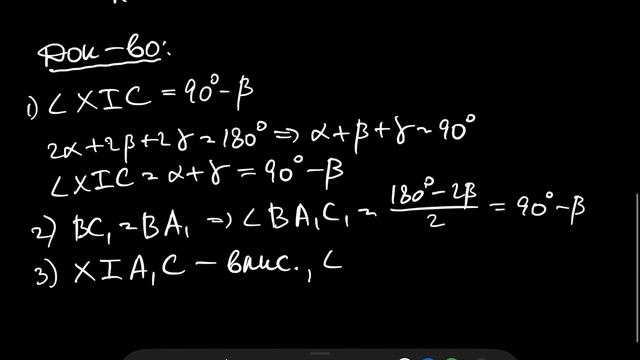 Док-во:
1) ∠XIC = 90° - β
2α + 2β + 2γ = 180° ⇒ α + β + γ = 90°
∠XIC = α + γ = 90° - β
2) BC₁ = BA₁ ⇒ ∠BA₁C₁ = (180° - 2β)/2 = 90° - β
3) XIA₁C - впис., ∠